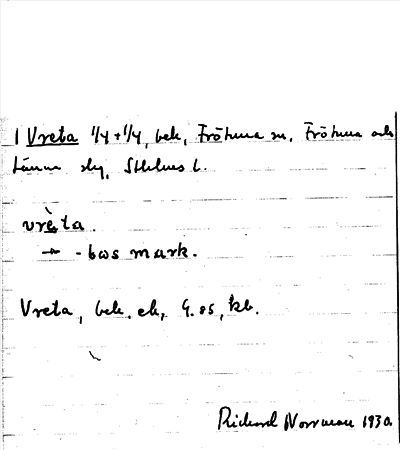 1 Vreta 1/4 + 1/4, bek, Frötuna sn, Frötuna och
Länna slg, Sthlms l.
vrèta.
→ - bos mark.
Vreta, bek. ek, G. 85, kb.
Rickard Norrman 1930.